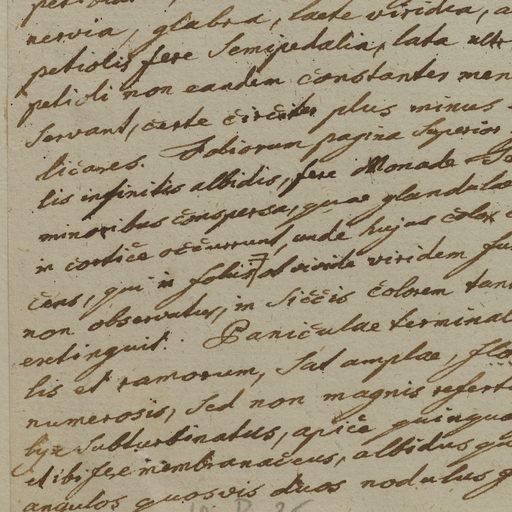 nervia, glabra, laete viridia, a
petiolis fere Semipedalia, lata ultr
petioli non eandem constanter men
Servant, certe circiter plus minus
licares. Foliorum pagina Superior
lis infinitis albidis, fere Monade
minoribus conspersa, quae glandulae
in cortice occurrunt, unde hujus color
cens, qui in foliis ob viride viridem fu
non observatur, in Siccis colorem tan
extinguit. Paniculae terminal
lis et ramorum, Sat amplae, flo
numerosis, Sed non magnis refert
lyx Subturbinatus, apice quinque
ibi fere membranaceus, albidus qu
angulos quosvis duos nodulus